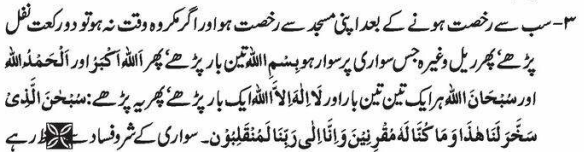 ۳- سب سے رخصت ہونے کے بعد اپنی مسجد سے رخصت ہو اور اگر مکروہ وقت نہ ہو تو دو رکعت نفل
پڑھے‘ پھر ریل وغیرہ جس سواری پر سوار ہو بِسْمِ اللہ تین بار پڑھے‘ پھر اَللہُ اَکْبَرُ اور اَلْحَمْدُ لِلّٰہِ
اور سُبْحَانَ اللہ ہر ایک تین تین بار اور لَا اِلٰہَ اِلَّا اللہُ ایک بار پڑھے‘ پھر یہ پڑھے: سُبْحٰنَ الَّذِیْ
سَخَّرَ لَنَا ھٰذَا وَمَا کُنَّا لَہٗ مُقْرِنِیْنَ وَاِنَّا اِلٰی رَبِّنَا لَمُنْقَلِبُوْن۔ سواری کے شر و فساد سے رہے